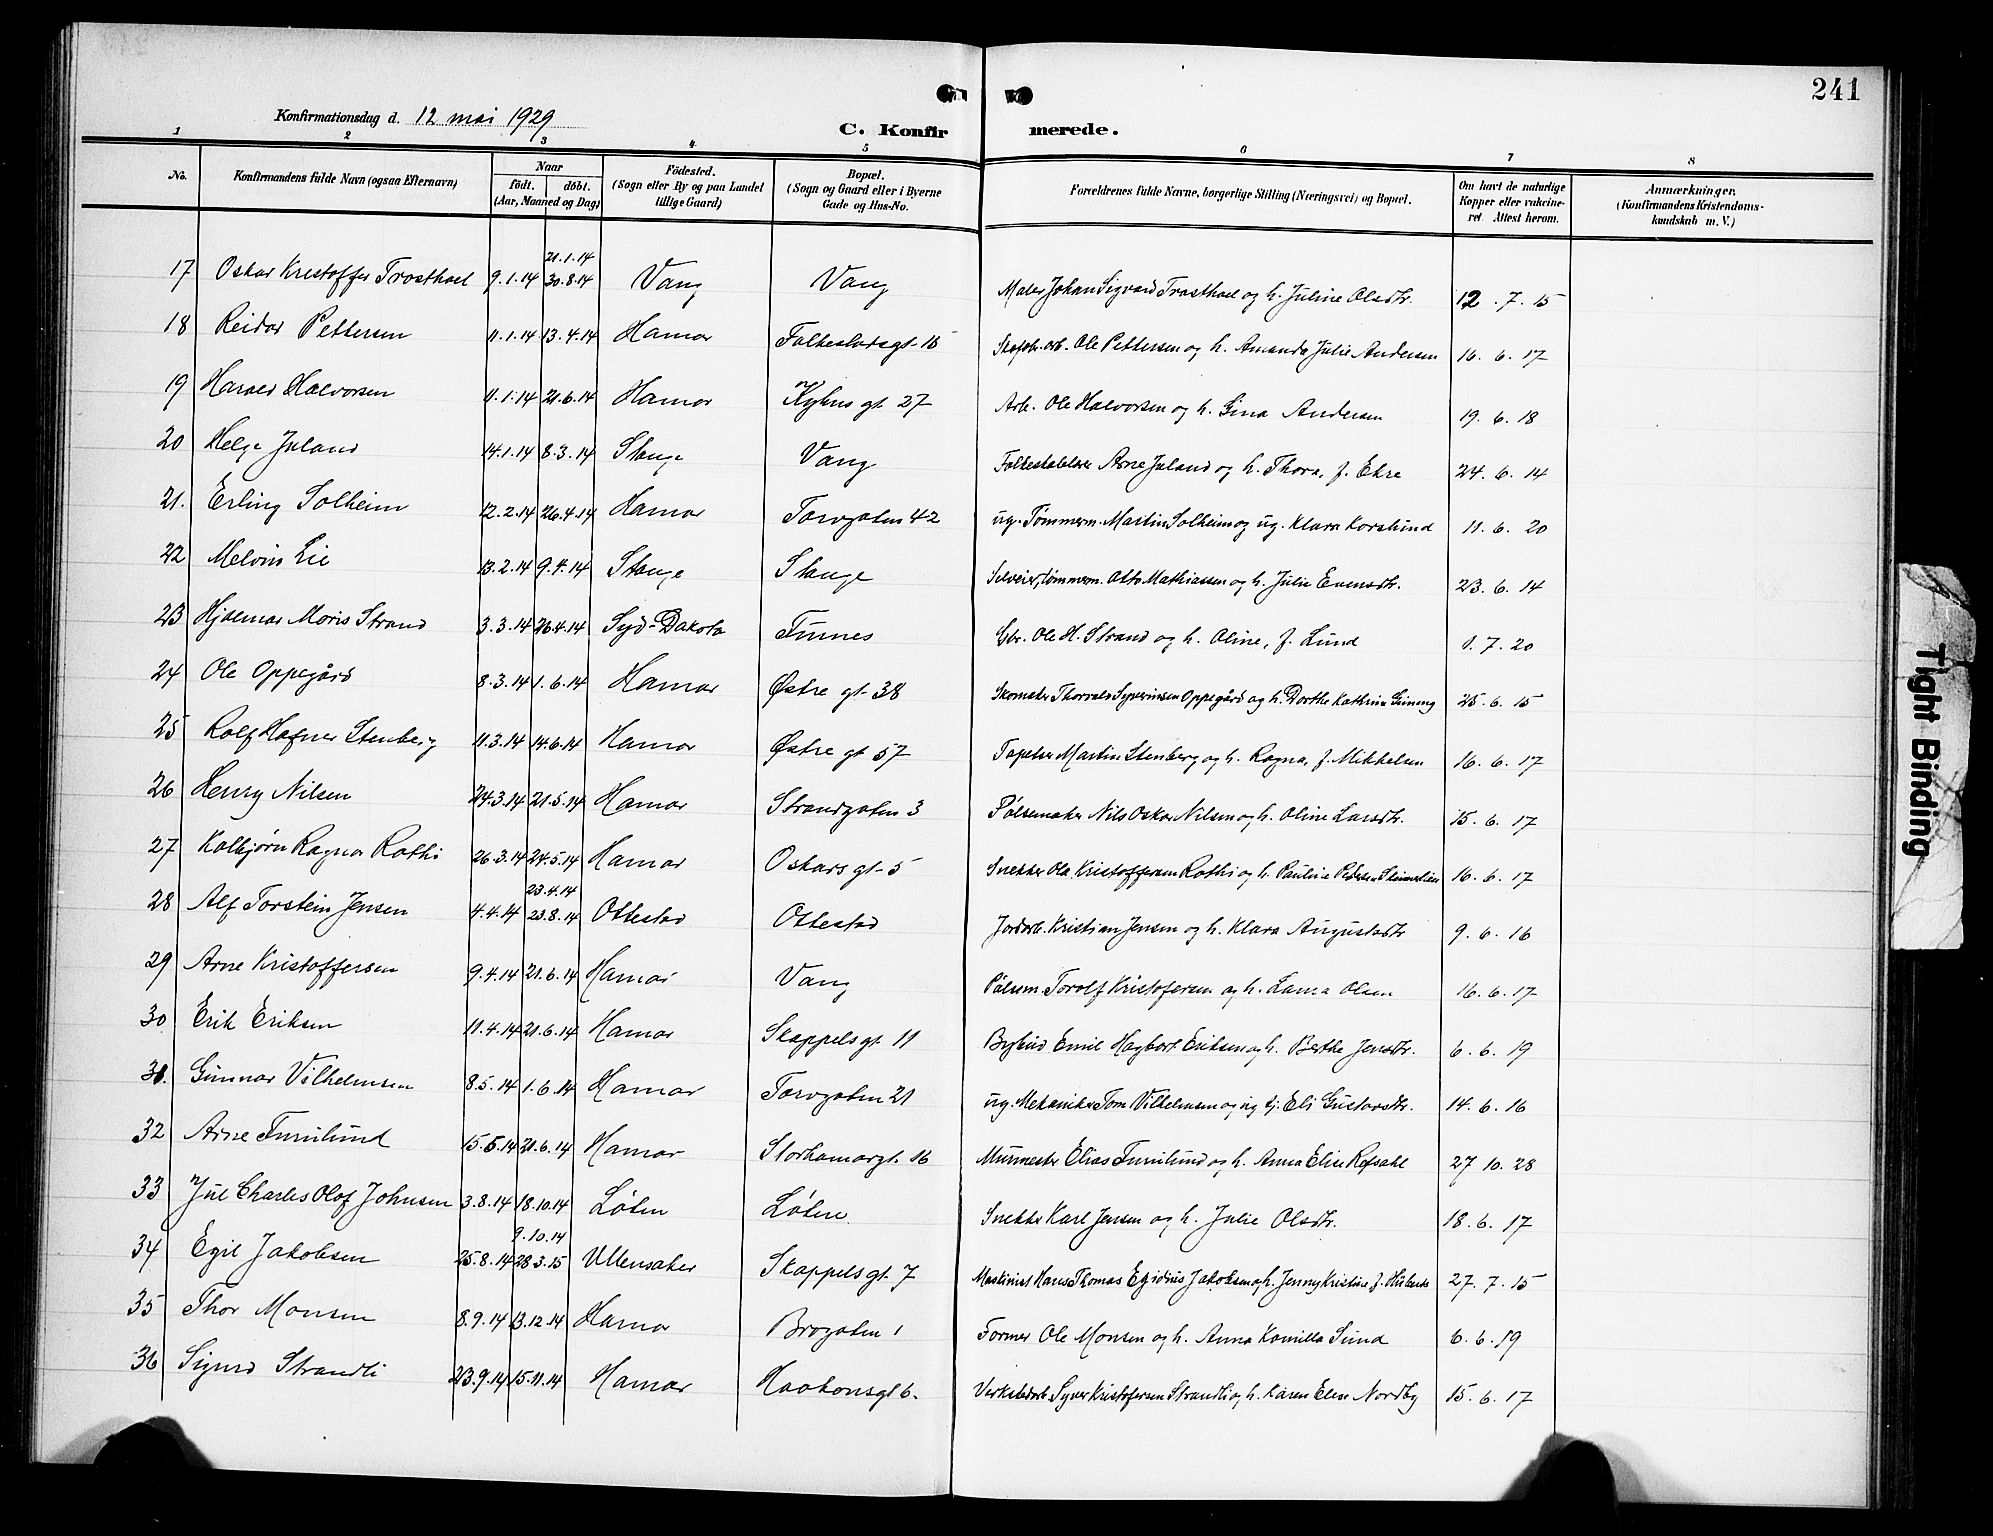 241
Konfirmationsdag d. 12 mai 1929
C. Konfirmerede.
1 2 3 4 5 6 7 8
No. Konfirmandens fulde Navn (ogsaa Efternavn) Naar födt. döbt. (Aar, Maaned og Dag) Födested. (Sogn eller By og paa Landet tillige Gaard) Bopæl. (Sogn og Gaard eller i Byerne Gade og Hus-No. Forældrenes fulde Navne, borgerlige Stilling (Næringsvei) og Bopæl. Om havt de naturlige Kopper eller vakcineret. Attest herom. Anmærkninger. (Konfirmandens Kristendomskundskab m. V.)
17 Oskar Kristoffer Trosthoel 9.1.14 21.1.14 30.8.14 Vang Vang Maler Johan Sigvard Trosthoel og h. Juline Olsdtr. 12.7.15
18 Reidar Pettersen 11.1.14 13.4.14 Hamar Folkestadsgt. 16 Skofabr. arb. Ole Pettersen og h. Amanda Julie Andersen 16.6.17
19 Harald Halvorsen 11.1.14 21.6.14 Hamar Kyhns gt. 27 Arb. Ole Halvorsen og h. Gina Andersen 19.6.18
20 Helge Juland 14.1.14 8.3.14 Stange Vang Folkeskolelærer Arne Juland og h. Thora, f. Ekre 24.6.14
21. Erling Solheim 12.2.14 26.4.14 Hamar Torvgaten 42 ug. Tømmerm. Martin Solheim og ug. Klara Korslund 11.6.20
22 Melvin Lie 13.2.14 9.4.14 Stange Stange Selveier, tømmerm. Otto Mathiassen og h. Julie Evensdtr. 23.6.14
23 Hjalmar Moris Strand 3.3.14 26.4.14 Syd-Dakota Furnes Gbr. Ole H. Strand og h. Oline, f. Lund 1.7.20
24 Ole Oppegård 8.3.14 1.6.14 Hamar Østre gt. 38 Skomaker Thorvald Syverinsen Oppegård og h. Dorthe Kathrine Gining 25.6.15
25 Rolf Hafner Stenberg 11.3.14 14.6.14 Hamar Østre gt 57 Tapetser Martin Stenberg og h. Ragna, f. Mikkelsen 16.6.17
26 Henry Nilsen 24.3.14 21.5.14 Hamar Strandgaten 3 Pølsemaker Nils Oskar Nilsen og h. Oline Larsdtr. 15.6.17
27 Kolbjørn Ragnar Rothi 26.3.14 24.5.14 Hamar Oskars gt. 5 Snekker Ole Kristoffersen Rothi og h. Pauline Pedersen 16.6.17
28 Alf Torstein Jensen 4.4.14 23.4.14 23.8.14 Ottestad Ottestad Jordarb. Kristian Jensen og h. Klara Augustadtr. 9.6.16
29 Arne Kristoffersen 9.4.14 21.6.14 Hamar Vang Pølsem. Torolf Kristofersen og h. Laura Olsen 16.6.17
30 Erik Eriksen 11.4.14 21.6.14 Hamar Skappels gt. 11 Bybud Emil Hagbart Eriksen og h. Berthe Jensdtr. 6.6.19
31. Gunnar Vilhelmsen 8.5.14 1.6.14 Hamar Torvgaten 21 ug. Mekaniker Tom Vilhelmsen og ug. tj. Eli Gustavsdtr. 14.6.16
32 Arne Furulund 15.5.14 21.6.14 Hamar Storhamargt. 16 Murmester Elias Furulund og h. Anna Elise Refsahl 27 10.28
33 Jul Charles Olof Johnsen 3.8.14 18.10.14 Løten Løten Snekker Karl Jensen og h. Julie Olsdtr. 18.6.17
34 Egil Jakobsen 25.8.14 9.10.14 28.3.15 Ullensaker Skappels gt. 7 Maskinist Hans Thomas Egidius Jakobsen og h. Jenny Kristine f. 27.7.15
35 Thor Monsen 8.9.14 13.12.14 Hamar Brogaten 1 Former Ole Monsen og h. Anna Kamilla Sund 6.6.19
36 Sigurd Strandli 23.9.14 15.11.14 Hamar Haakonsgt 6. Verkstedarb. Syver Kristofersen Strandli og h. Karen Elise Nordby 15.6.17
Tight Binding